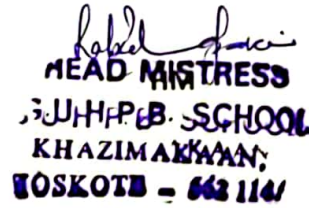 HEAD MISTRESS
HM
G.U.H.P.B. SCHOOL
KHAZIMAKHAAN,
HOSKOTE - 562 114